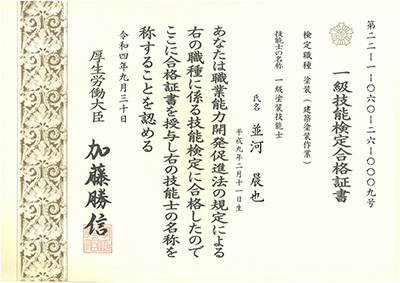 第二二―1―一〇六〇―二六―〇〇〇九号
一級技能検定合格証書
検定職種 塗装(建築塗装作業)
技能士の名称 一級塗装技能士
氏名 並河 晨也
平成九年二月十一日生
あなたは職業能力開発促進法の規定による
右の職種に係る技能検定に合格したので
ここに合格証書を授与し右の技能士の名称を
称することを認める
令和四年九月三十日
厚生労働大臣 加藤勝信